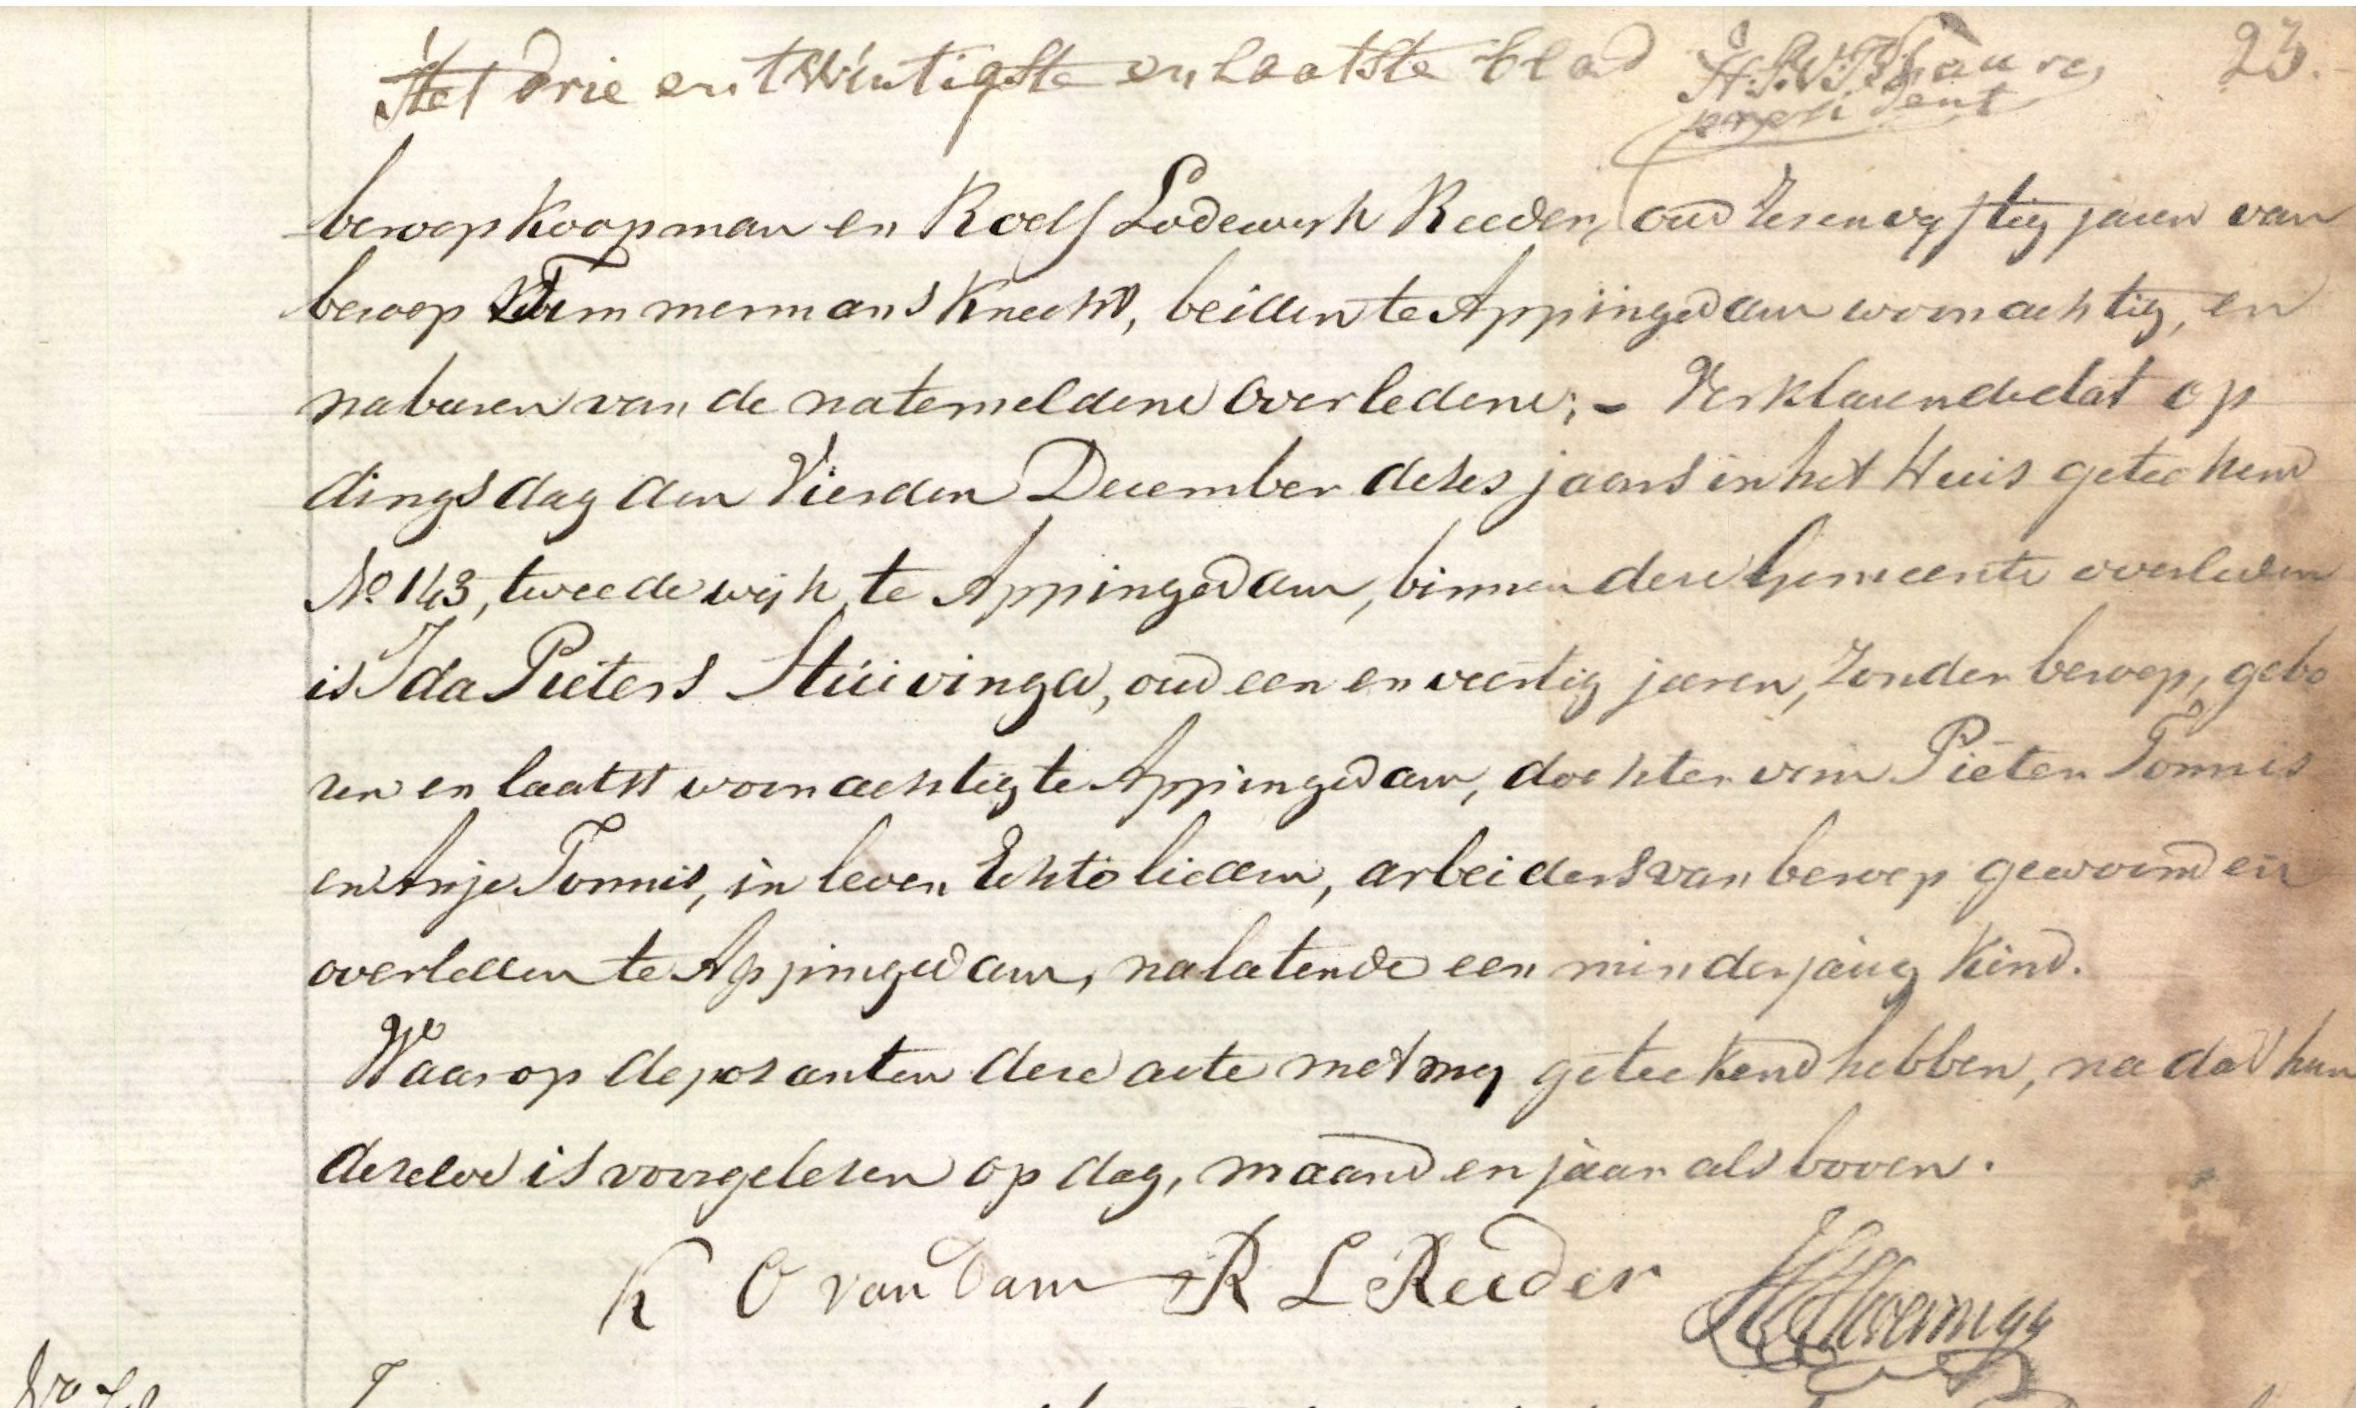 Het drie en twintigste en laatste blad 23.
president
beroep Koopman en Roelf Lodewyk Reeder, oud zesenvyftig jaren van
beroep Timmermans Knecht, beiden te Appingedam woonachtig, en
naburen van de natemeldene overledene; – Verklarende dat op
dingsdag den Vierden December dezes jaars in het Huis geteekend
No 143, tweede wyk, te Appingedam, binnen deze Gemeente overleden
is Ida Pieters Stuivinga, oud een en veertig jaren, zonder beroep, gebo
ren en laatst woonachtig te Appingedam, dochter van Pieter Tonnis
en Anje Tonnis, in leven Echtelieden, arbeiders van beroep gewoond en
overleden te Appingedam, nalatende een minderjarig Kind.
Waarop deposanten deze acte met my geteekend hebben, na dat hun
dezelve is voorgelezen op dag, maand en jaar als boven.
K O van Dam R L Reeder